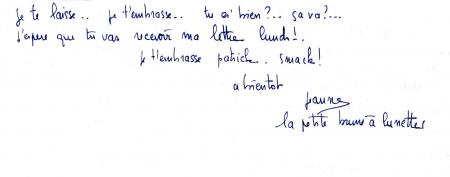 je te laisse.. je t'embrasse.. tu vas bien?.. ça va?...
j'espere que tu vas recevoir ma lettre lundi!.
je t'embrasse patrick. smack!
a bientot
la petite brune à lunettes